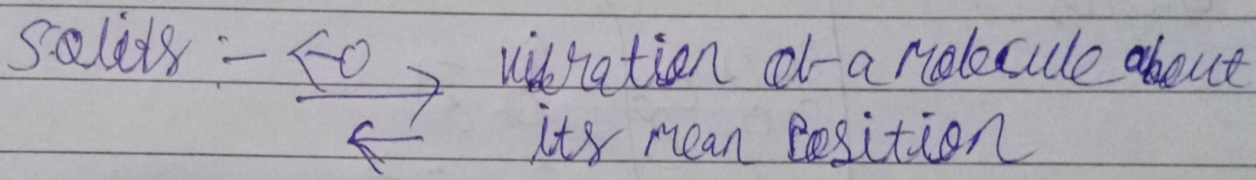 Solids :- ←o → vibration of a molecule about
← its mean Position